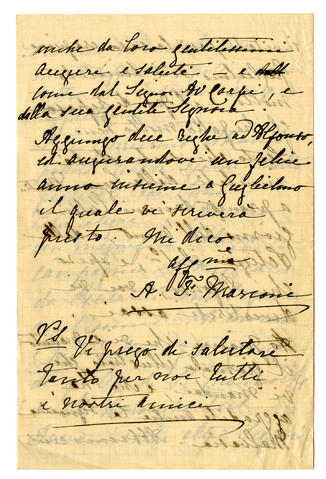 anche da loro gentilissimi
auguri e saluti — e
come dal Signor Av Carpi, e
della sua gentile Signora
Aggiungo due righe ad Alfonso,
ed augurandovi un felice
anno insieme a Guglielmo
il quale vi scriverà
presto. Mi dico
aff.ma
A. F. Marconi
P.S. Vi prego di salutare
tanto per noi tutti
i nostri amici